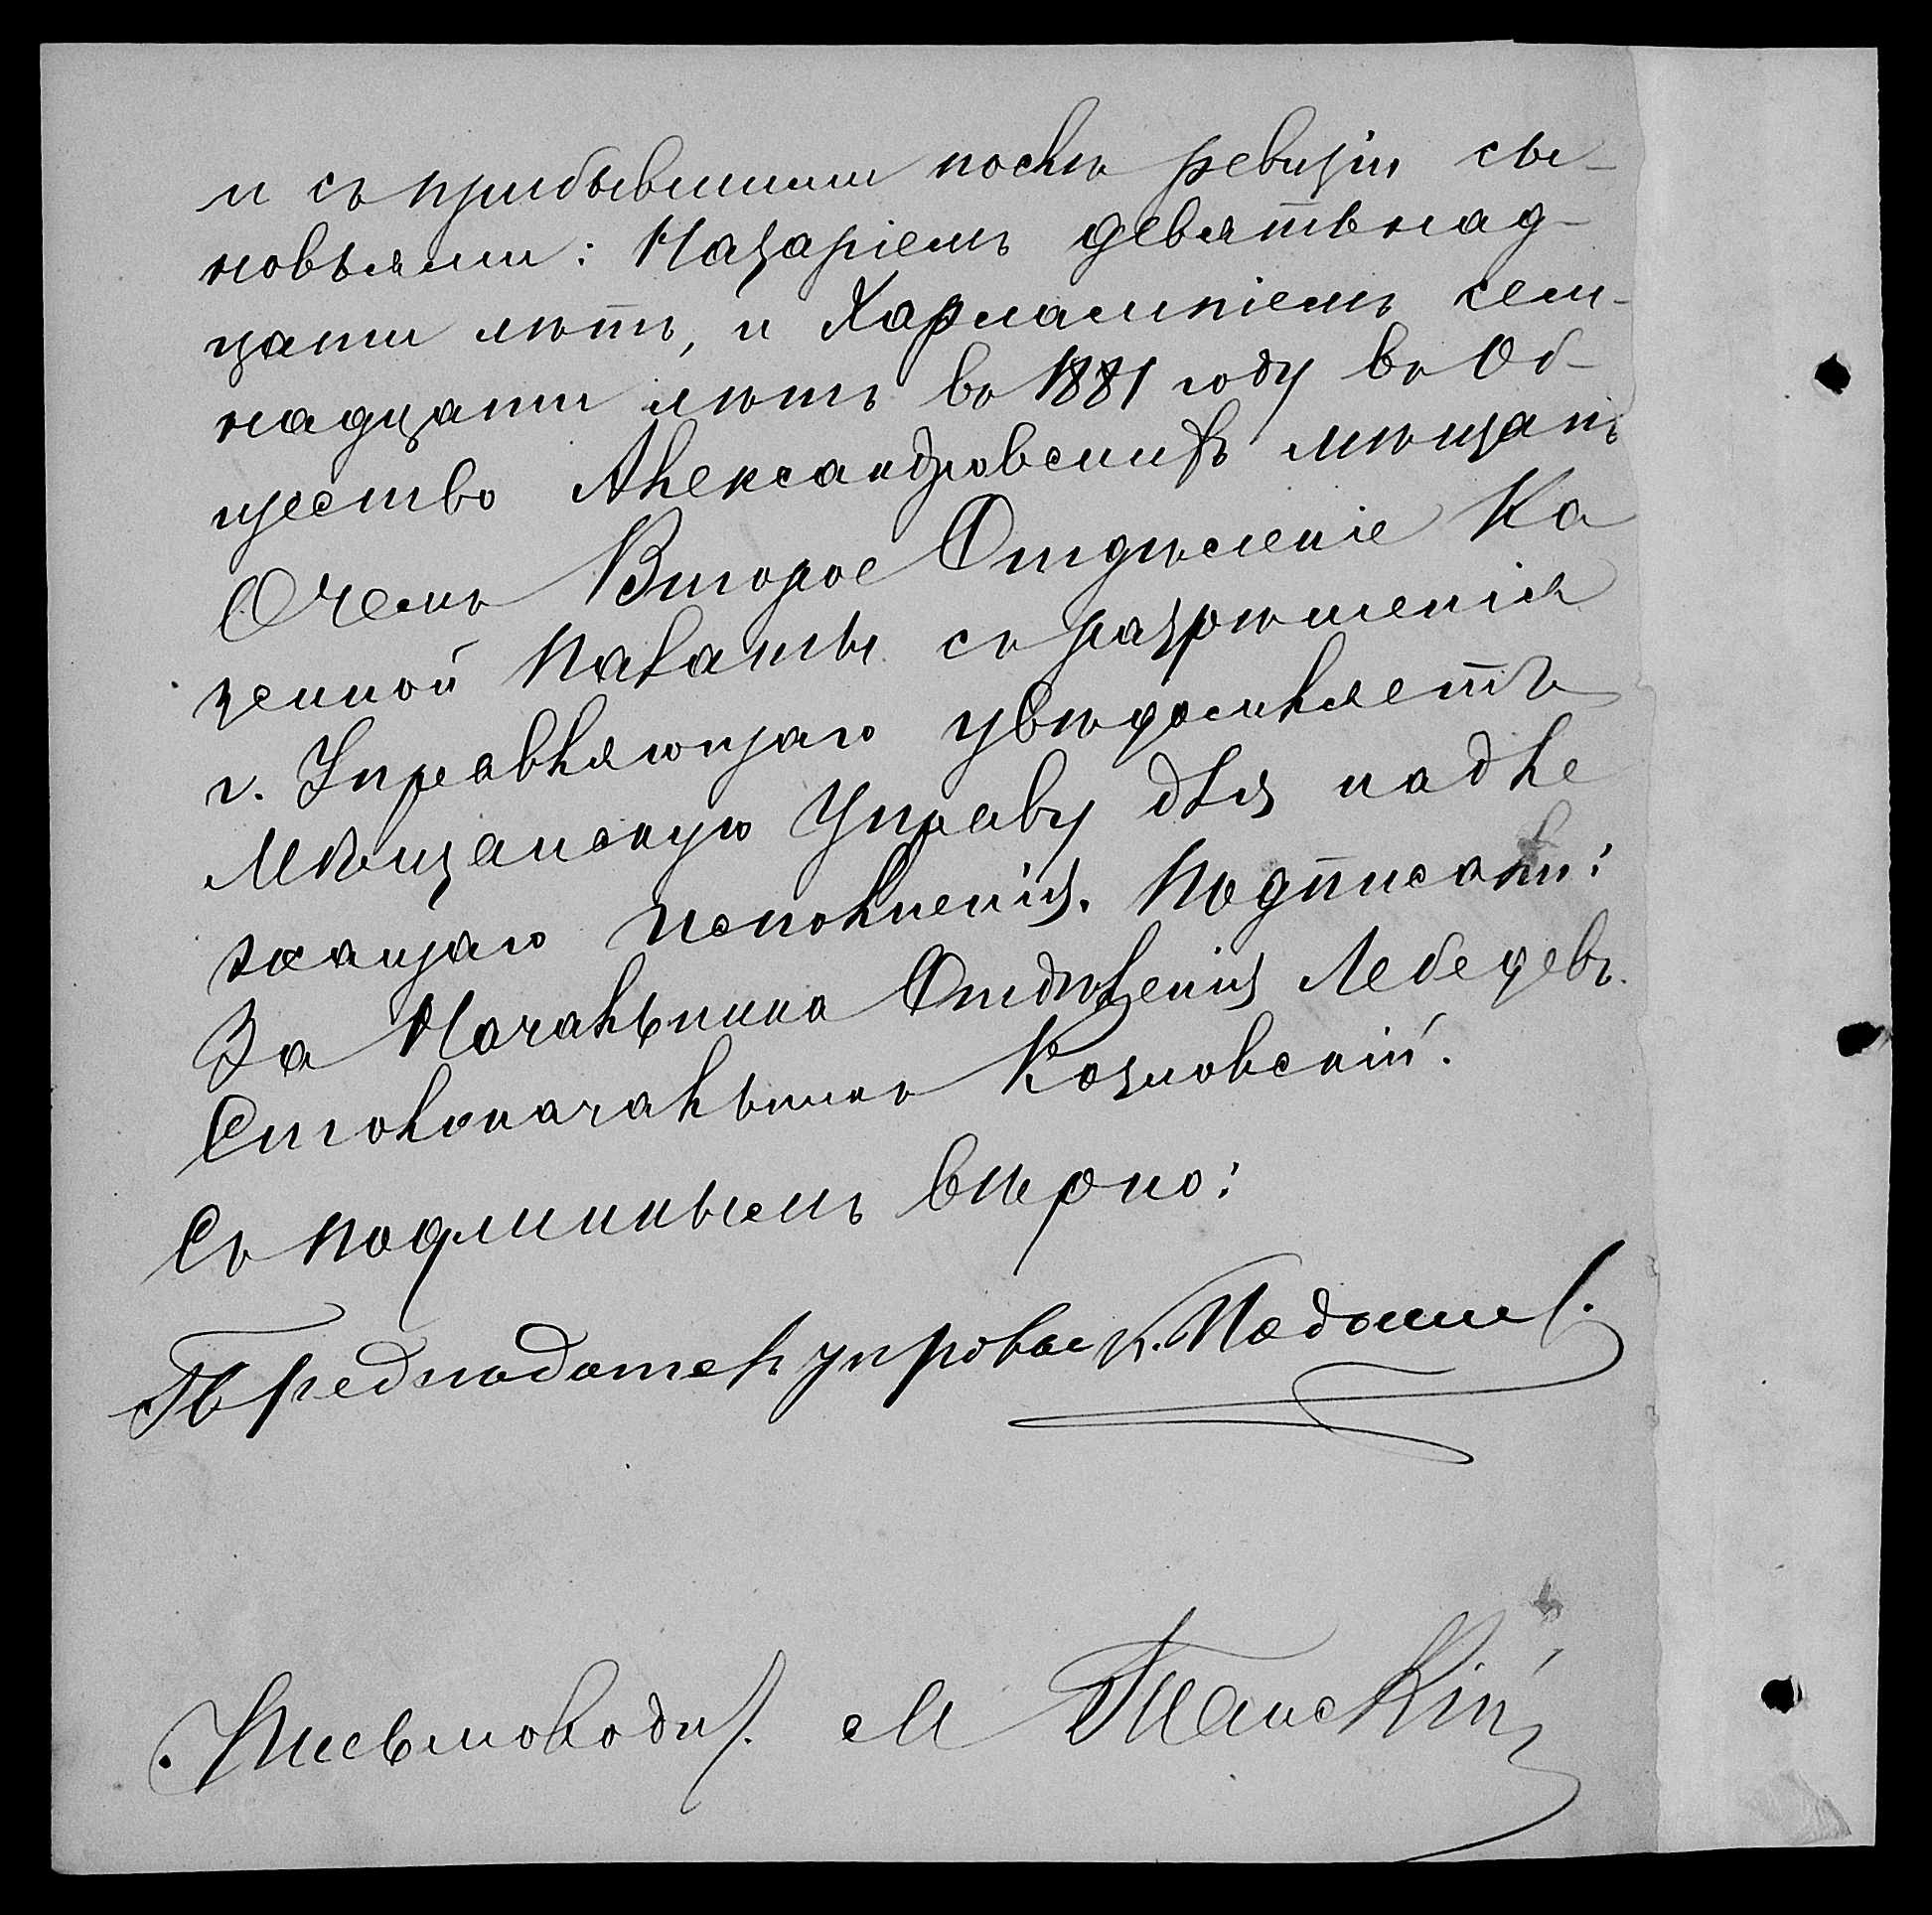 и съ прибывшими послѣ ревизіи сы-
новьями: Назаріемъ девятьнад-
цати лѣтъ, и Харлампіемъ сем-
надцати лѣтъ въ 1881 году въ Об-
щество Александровскихъ мѣщанъ
О чемъ Второе Отдѣленіе Ка
зенной Палаты съ разрѣшенія
г. Управляющаго увѣдомляетъ
Мѣщанскую Управу для надле
жащаго исполненія. Подписали:
За Начальника Отдѣленія Лебедевъ.
Столоначальникъ Козловскій.
Съ подлиннымъ вѣрно:
Предсѣдатель управы
Письмовод. М